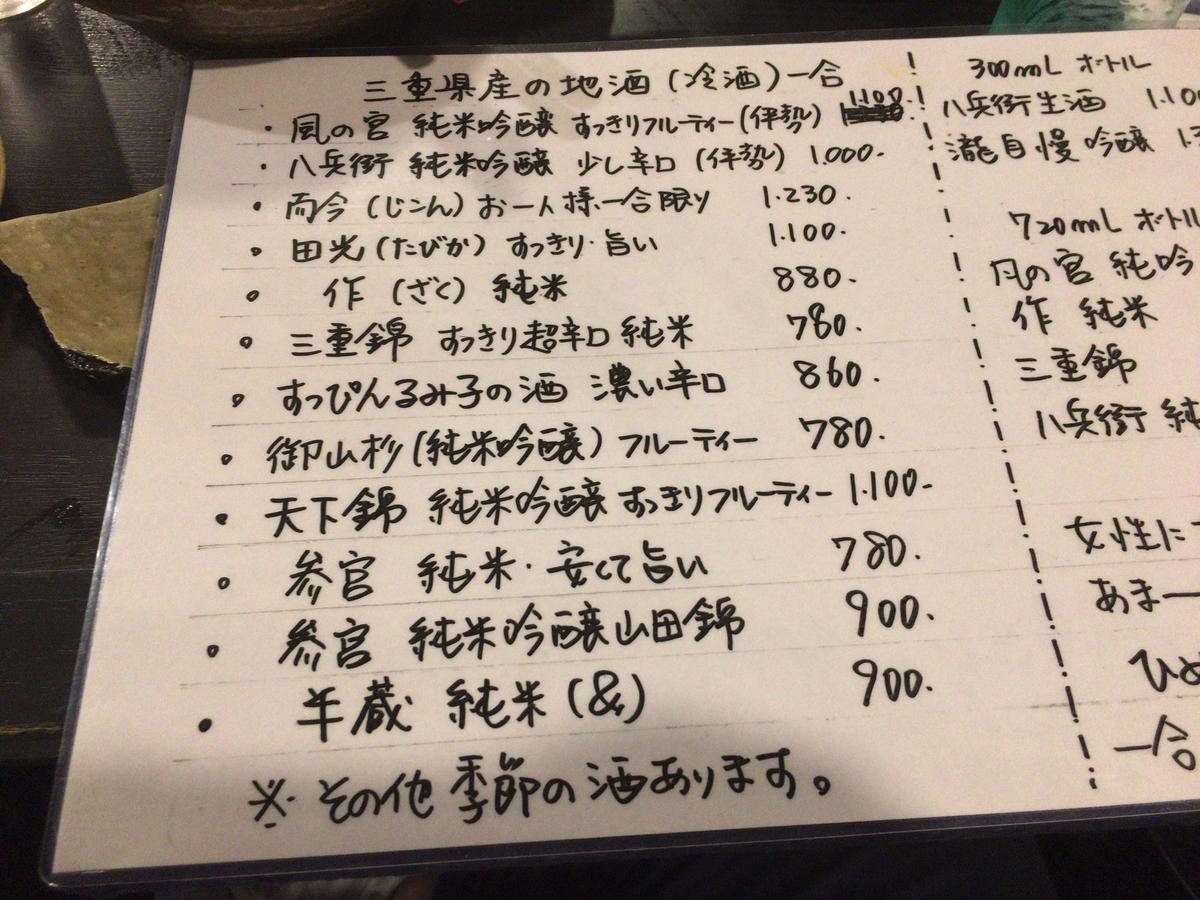 三重県産の地酒(冷酒)一合
・風の宮 純米吟醸 すっきりフルーティー(伊勢) 1.100.
・八兵衛 純米吟醸 少し辛口 (伊勢) 1.000.
・而今(じこん)お一人様一合限り 1.230.
・田光(たびか) すっきり・旨い 1.100.
・作 (ざく) 純米 880.
・三重錦 すっきり超辛口 純米 780.
・すっぴんるみ子の酒 濃い辛口 860.
・御山杉(純米吟醸)フルーティー 780.
・天下錦 純米吟醸 すっきりフルーティー 1.100-
・参宮 純米・安くて旨い 780.
・参宮 純米吟醸山田錦 900.
・半蔵 純米(&) 900.
※ その他 季節の酒あります。
300mL ボトル
八兵衛生酒 1.100
瀧自慢 吟醸
720mL ボトル
風の宮 純吟
作 純米
三重錦
八兵衛 純
女性に
あまー
ひめ
一合